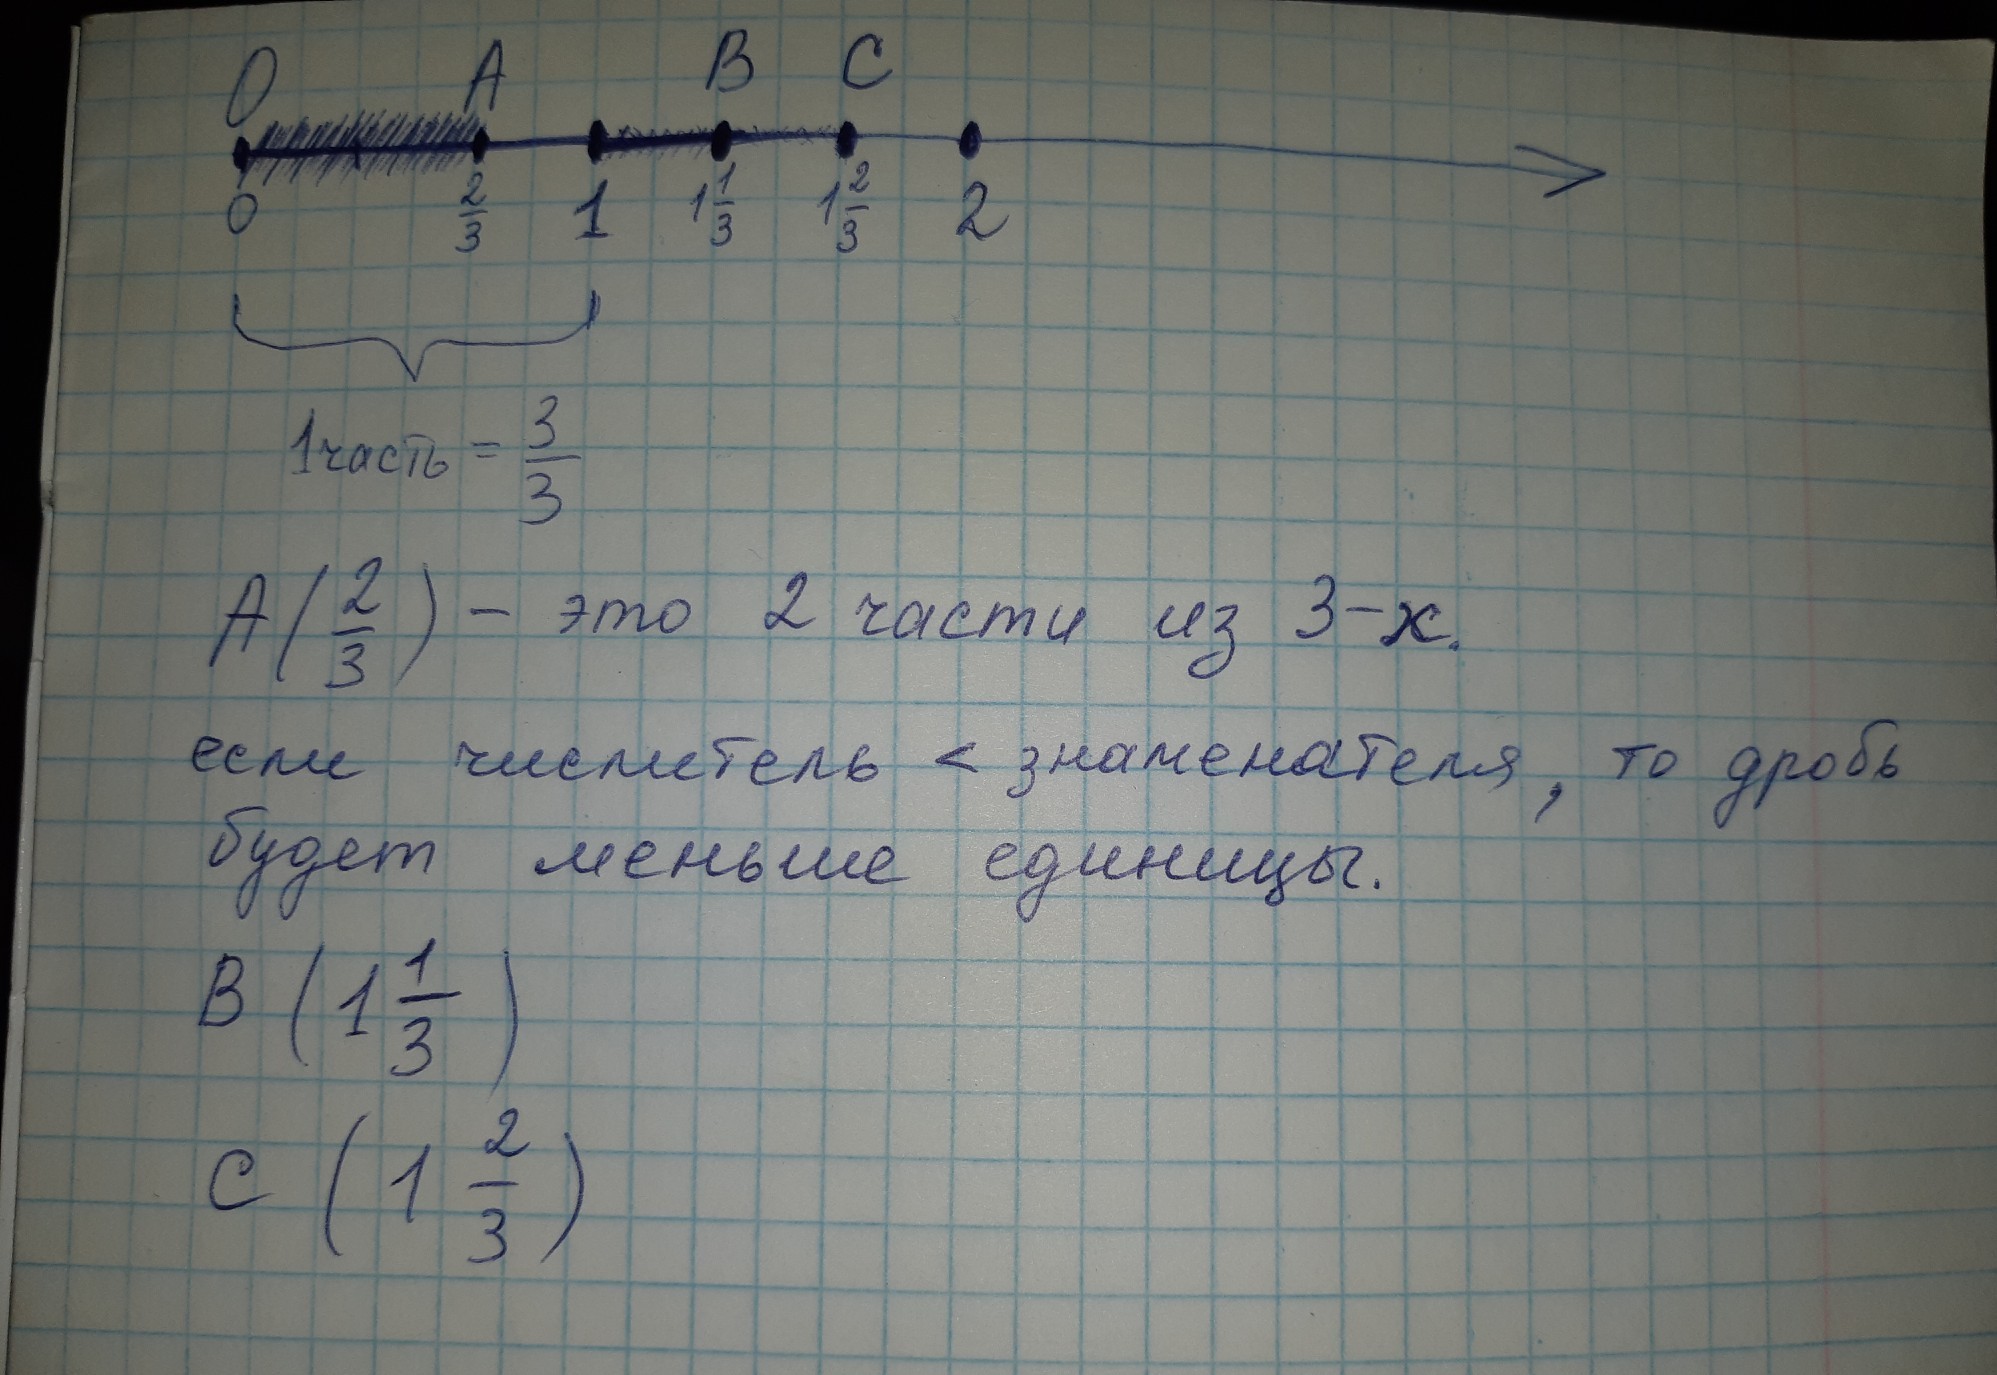 O A B C
0 2/3 1 1 1/3 1 2/3 2
1 часть = 3/3
A(2/3) - это 2 части из 3-х.
если числитель < знаменателя, то дробь
будет меньше единицы.
B (1 1/3)
C (1 2/3)